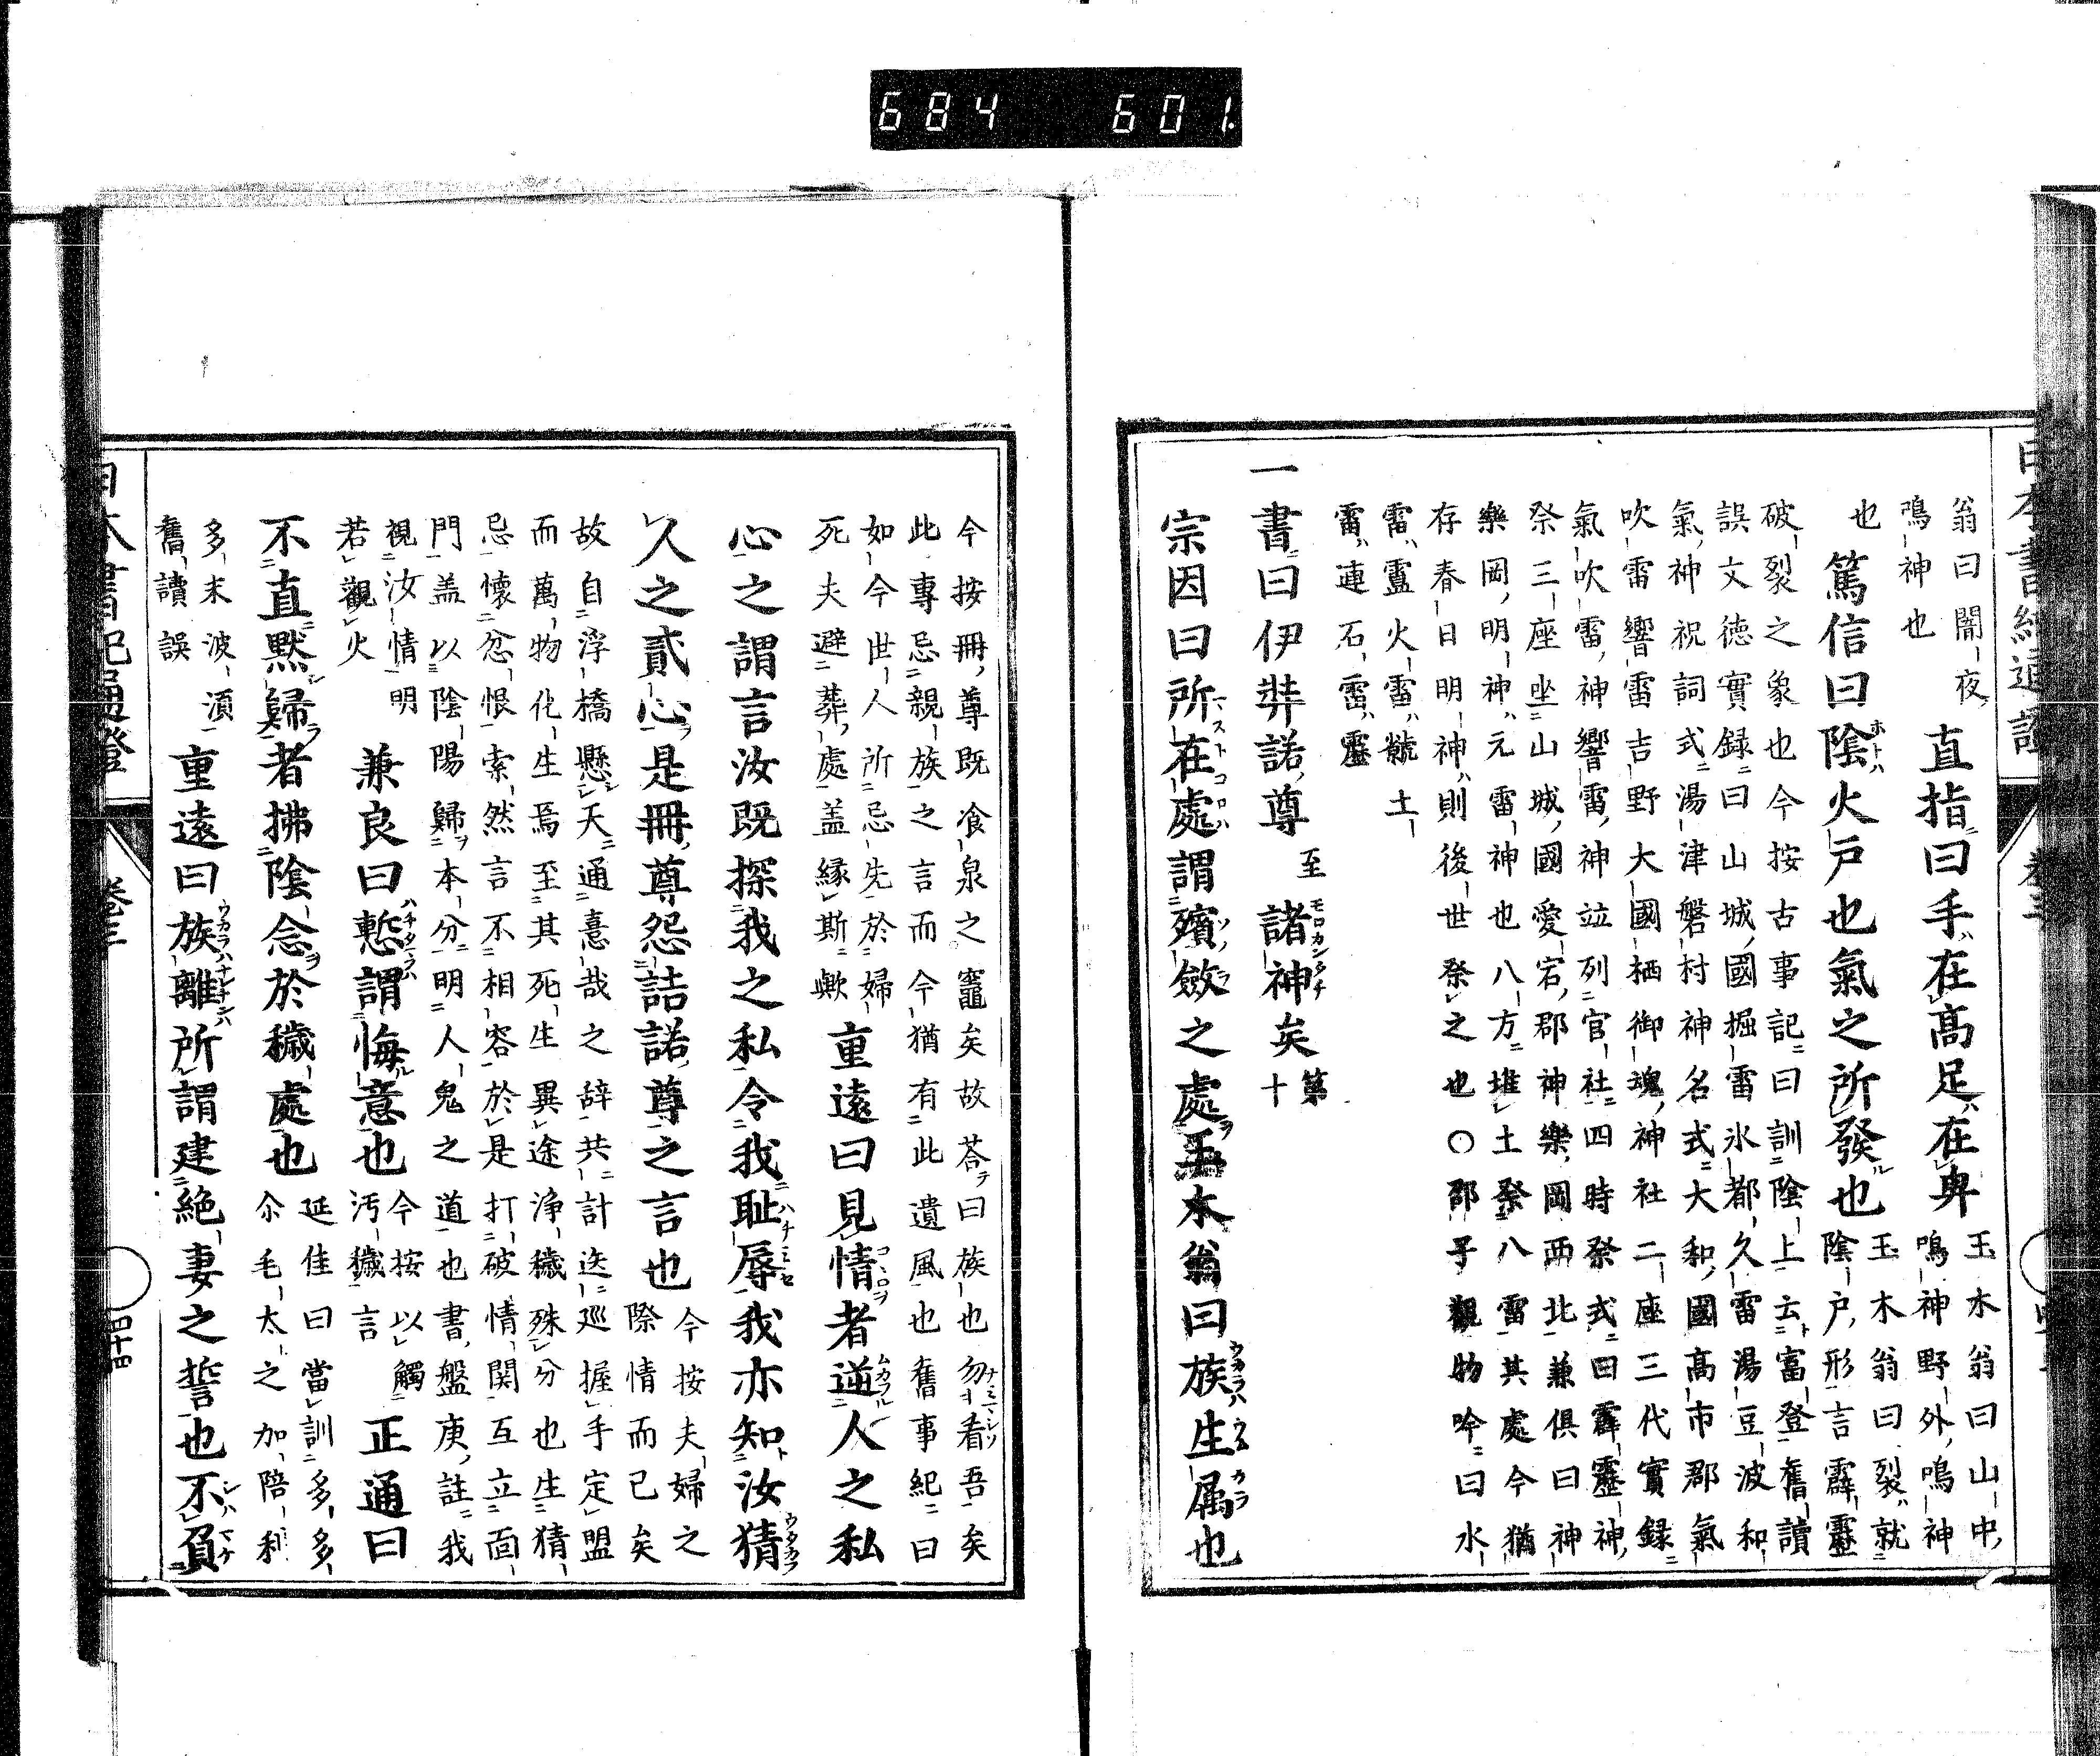 日本書紀通證
卷三
翁曰闇夜
鳴神也
直指曰手ハ在高足ハ在卑
玉木翁曰山中
鳴神野外鳴神
也
篤信曰陰火戸也氣之所發也
玉木翁曰裂ハ就
陰戸形言霹靂
破裂之象也今按古事記曰訓陰上云富登舊讀
誤文徳實録曰山城國掘雷氷都久雷湯豆波和
氣神祝詞式湯津磐村神名式大和國高市郡氣
吹雷響雷吉野大國栖御魂神社二座三代實録
氣吹雷神響雷神竝列官社四時祭式曰霹靂神
祭三座坐山城國愛宕郡神樂岡西北兼俱曰神
樂岡明神ハ元雷神也八方堆土祭八雷其處今猶
存春日明神ハ則後世祭之也〇邵子觀物吟曰水
雷ハ火雷ハ虩土
雷ハ連石雷ハ靂
一書曰伊弉諾尊至諸神矣第十
宗因曰所在處謂殯斂之處玉木翁曰族生属也
今按冊尊既飡泉之竈矣故荅曰族也勿看吾矣
此專忌親族之言而今猶有此遺風也舊事紀曰
如今世人所忌先於婦
死夫避葬處盖縁斯歟
重遠曰見情者逆人之私
心之謂言汝既探我之私令我耻辱我亦知汝猜
人之貳心是冊尊怨詰諾尊之言也
今按夫婦之
際情而已矣
故自浮橋懸天通憙哉之辞共計迭巡握手定盟
而萬物化生焉至其死生異途浄穢殊分也生猜
忌懷忿恨索然言不相容於是打破情関互立面
門盖以陰陽歸本分明人鬼之道也書盤庚註我
視汝情明
若觀火
兼良曰慙謂悔意也
今按以觸
汚穢言
正通曰
不直黙歸者拂陰念於穢處也
延佳曰當訓多多
尒毛太之加陪利
多末波湏
舊讀誤
重遠曰族離所謂建絶妻之誓也不負
日本書紀通證
卷三
四十四
684 601